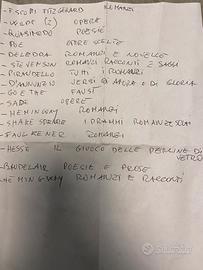 - F. SCOTT FITZGERARD ROMANZI
- WILDE (2) OPERE
- QUASIMODO POESIE
- POE OPERE SCELTE
- DELEDDA ROMANZI E NOVELLE
- STEVENSON ROMANZI RACCONTI E SAGGI
- PIRANDELLO TUTTI I ROMANZI
- D'ANNUNZIO VERSI D'AMORE O DI GLORIA
- GOETHE FAUST
- SADE OPERE
- HEMINGWAY ROMANZI
- SHAKESPEARE I DRAMMI
- FAULKENER ROMANZI
- HESSE IL GIUOCO DELLE PERLINE DI VETRO
- BAUDELAIR POESIE E PROSE
HEMINGWAY ROMANZI E RACCONTI
subito